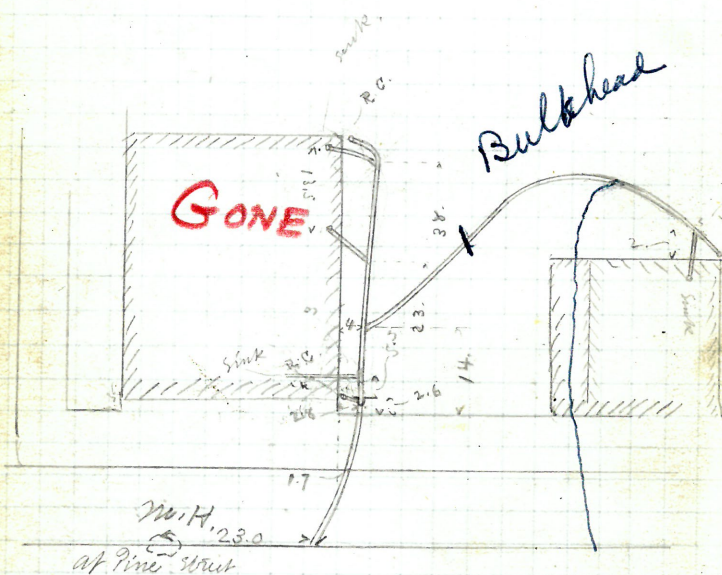 sink.
R.C.
Bulkhead
GONE
13.5
38.
2
sink
23.
4
14.
Sink
R.C.
2.6
1.7
M.H. 23.0
at Pine Street